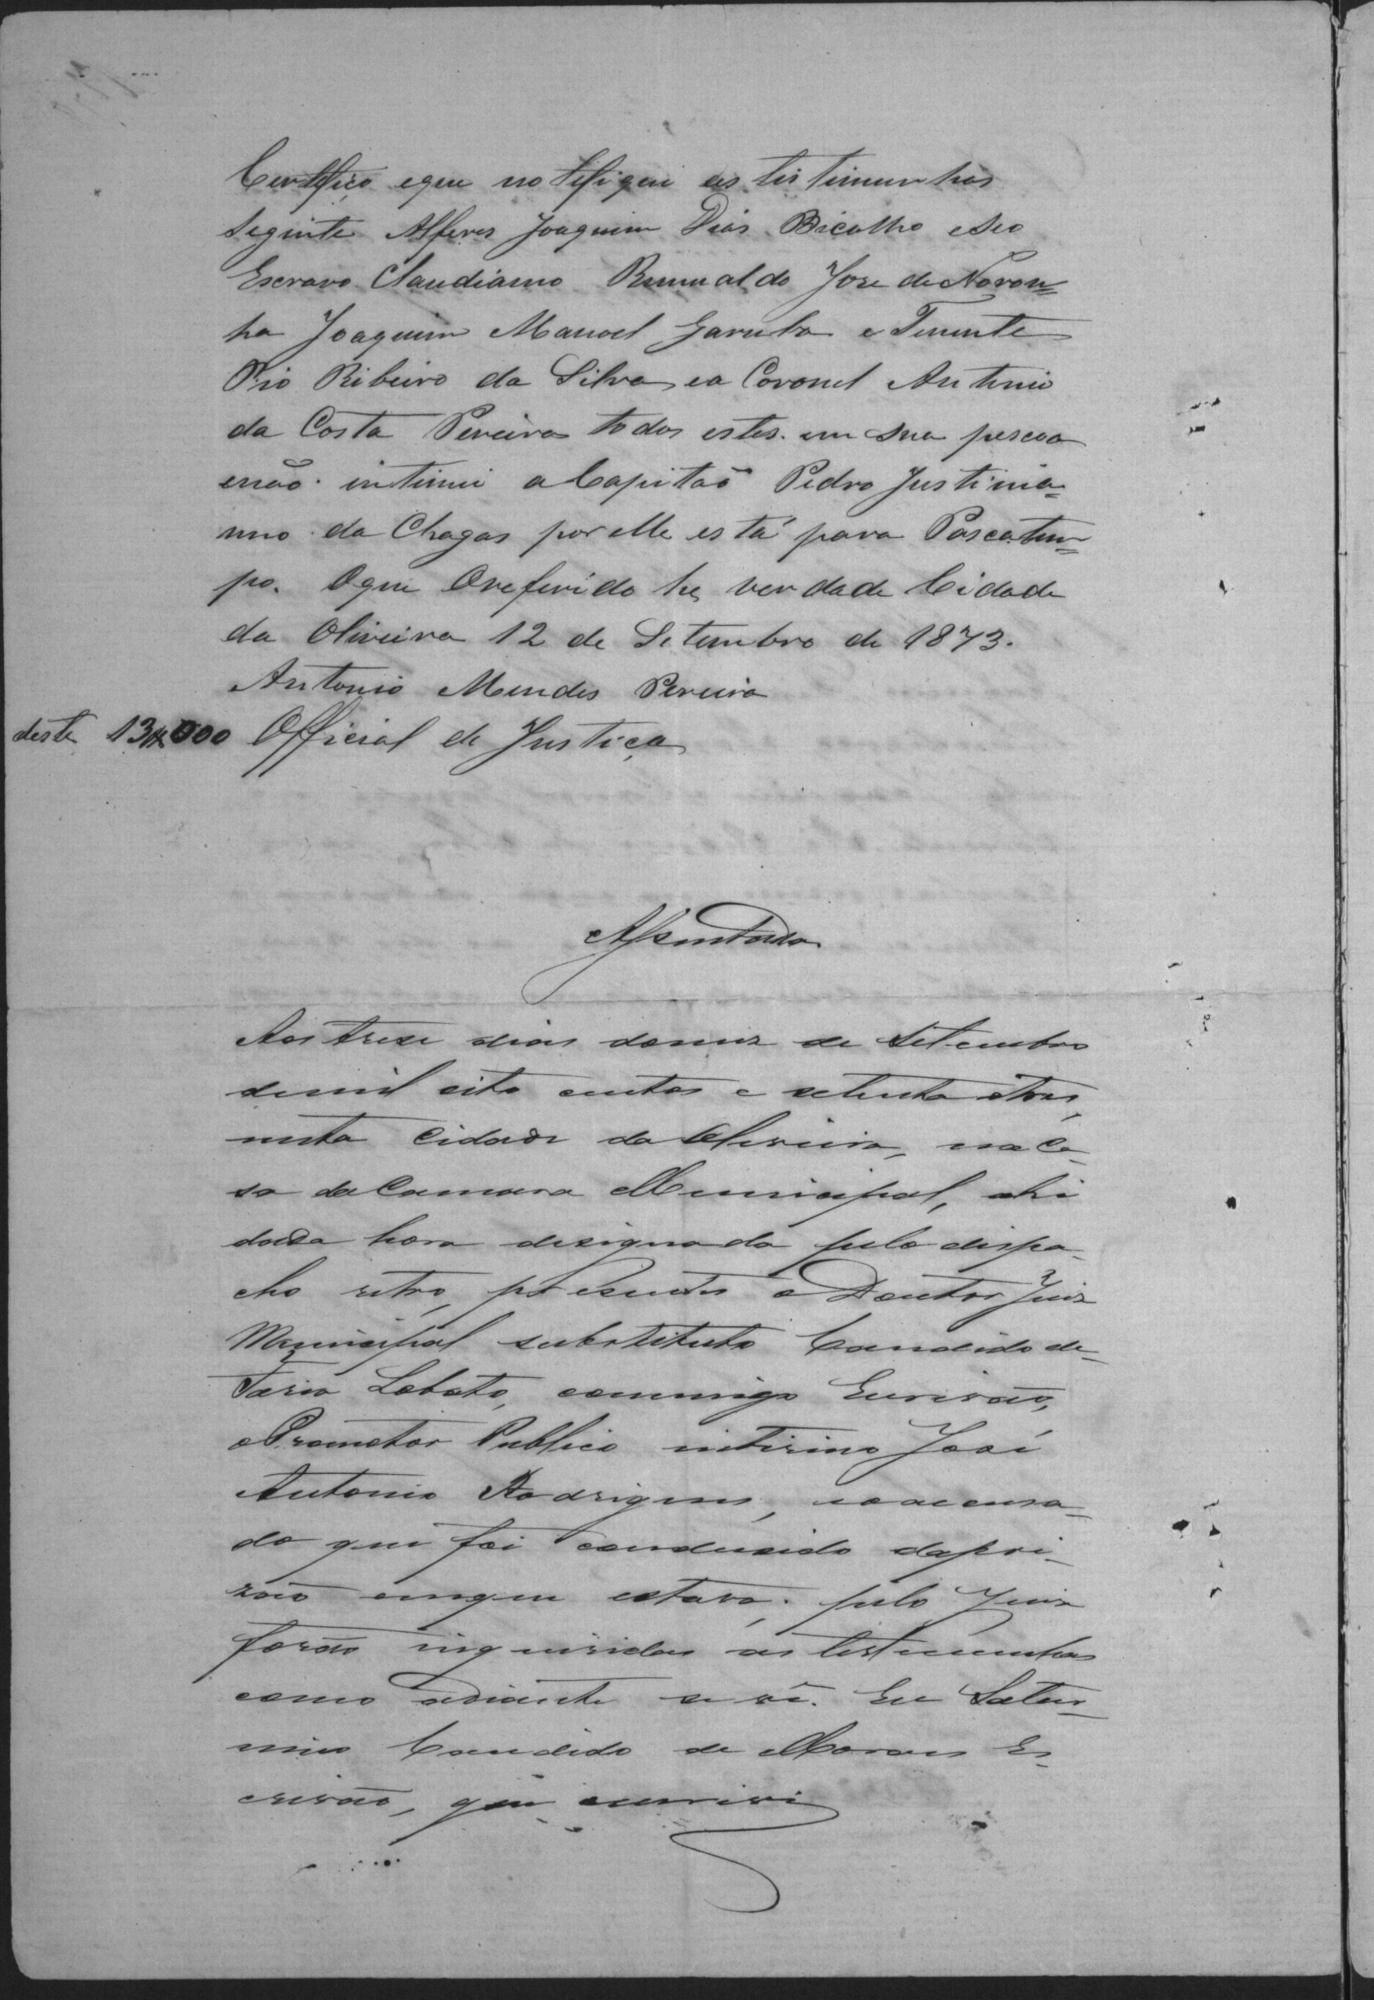 Certifico eque notefiquei as testimunhas
seguinte Alferes Joaquim Dias Bicalho eseo
Escravo Claudianno Rumualdo Jose de Noron=
ha Joaquim Manoel Garcula e Tenente
Pio Ribeiro da Silva ea Coronel Antonio
da Costa Pereira todos estes em sua pescoa
enão intimei a Capitaõ Pedro Justinia=
nno da Chagas por elle está para Pascatem=
po. Oque Oreferido he verdade Cidade
da Oliveira 12 de Setembro de 1873.
Antonio Mendes Pereira
deste 13$000 Official de Justiça
Assentada
Aos treze dias domez de Setembro
demil oito centos e setenta etres,
nesta Cidade da Oliveira, na Ca-
sa da Camara Municipal, ahi
dada hora designada pelo despa-
cho retro, presentes o Doutor Juiz
Municipal substituto Candido de
Faria Lobato, commigo Escrivão,
o Promotor Publico interino José
Antonio Rodrigues, eoaccusa-
do que foi condusido dapri-
zaõ emque estava, pelo Juiz
foraõ inqueridas as testemunhas
como adiante se vê. Eu Satur-
nino Candido de Moraes Es-
crivaõ, que escrivi